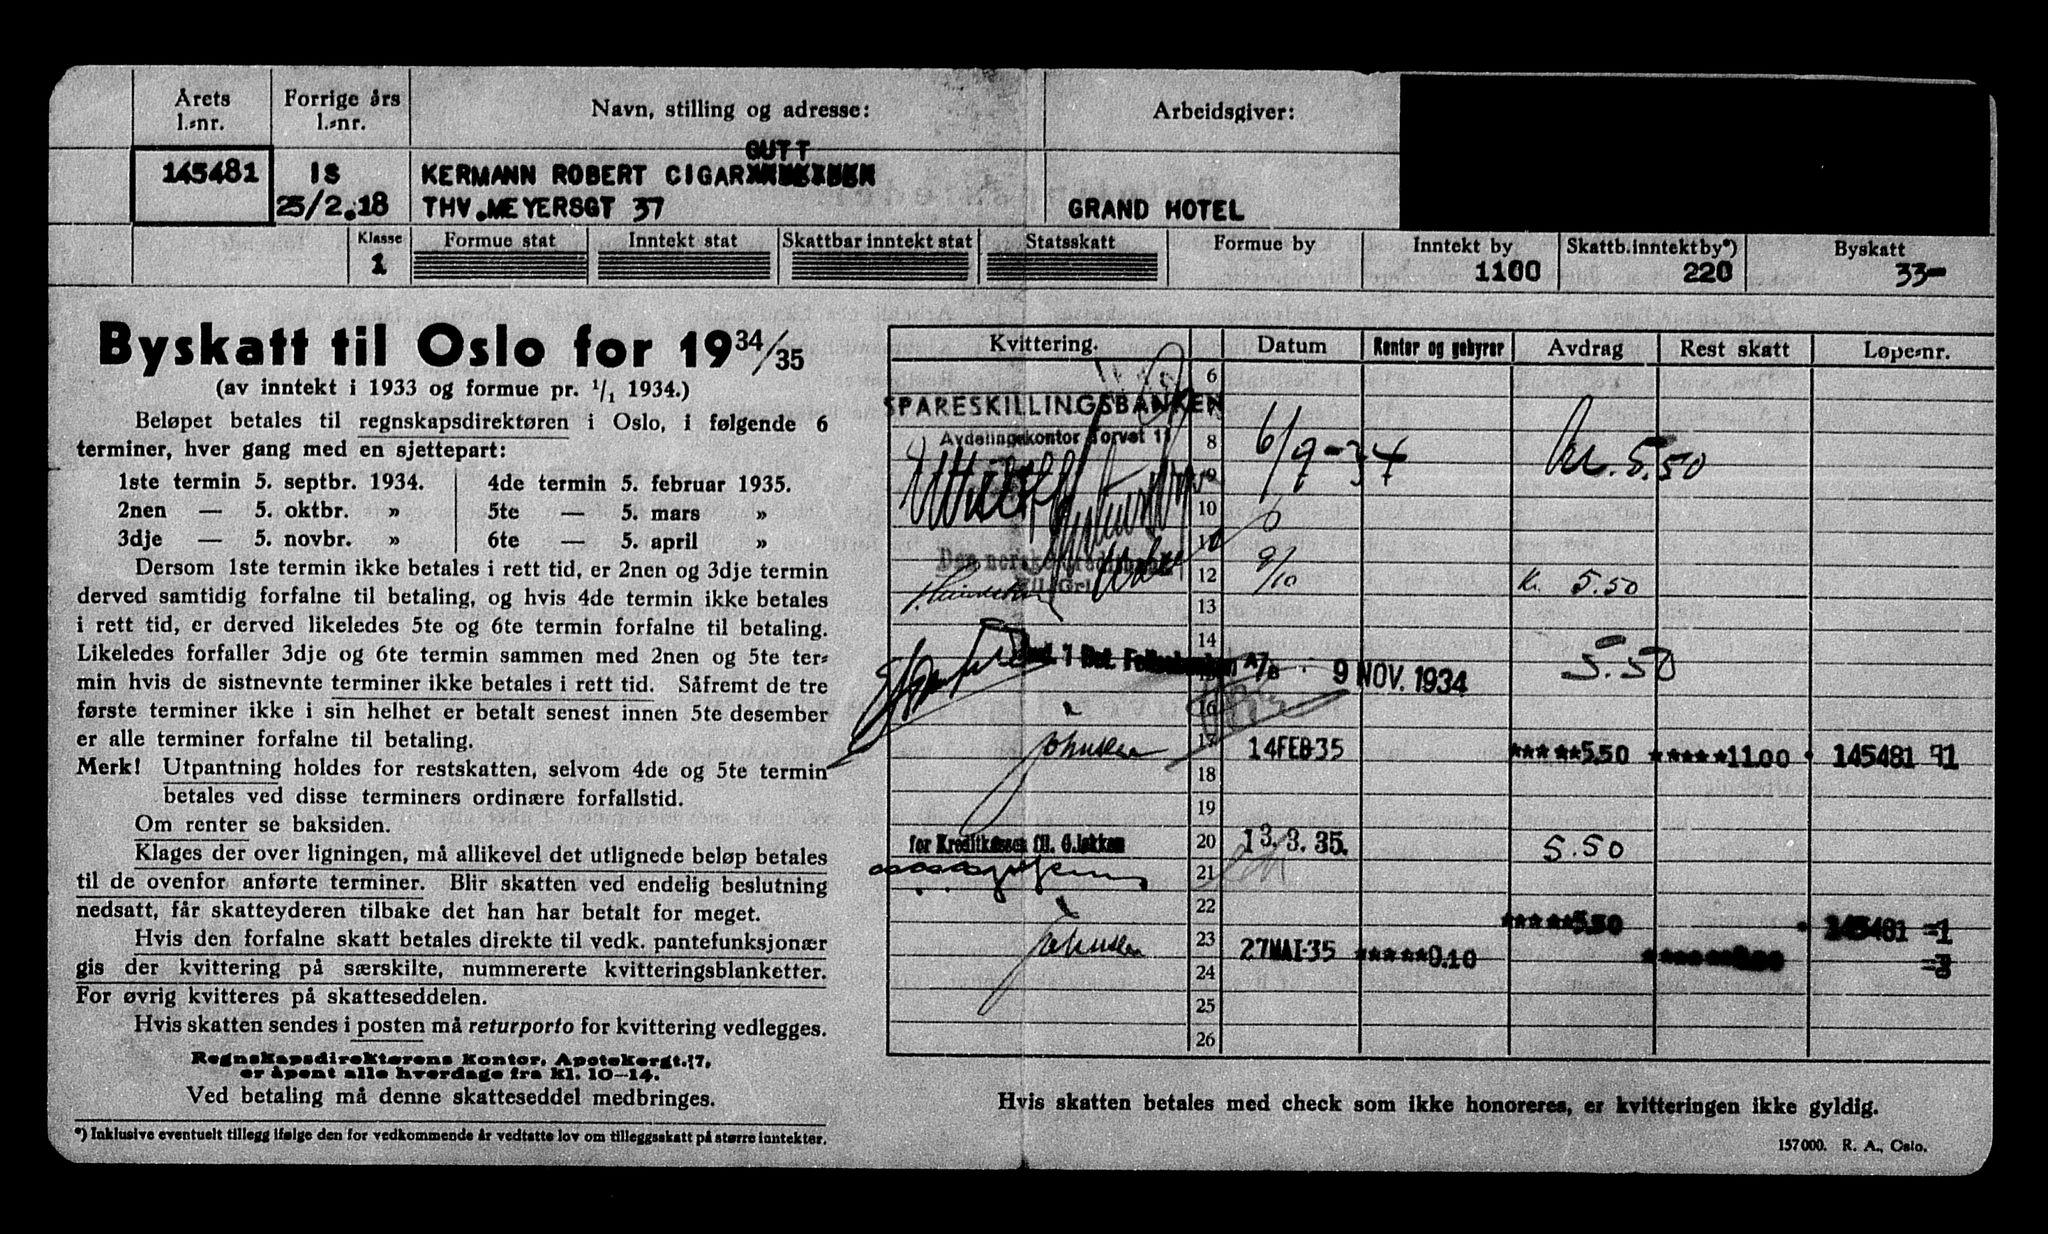 Årets l.=nr.
Forrige års l.=nr.
Navn, stilling og adresse:
Arbeidsgiver:
GUTT
145481 IS KERMANN ROBERT CIGAR
25/2.18 THV.MEYERSGT 37 GRAND HOTEL
Klasse Formue stat Inntekt stat Skattbar inntekt stat Statsskatt Formue by Inntekt by Skattb.inntekt by*) Byskatt
1 1100 220 33-
Byskatt til Oslo for 1934/35
(av inntekt i 1933 og formue pr. 1/1 1934.)
Beløpet betales til regnskapsdirektøren i Oslo, i følgende 6
terminer, hver gang med en sjettepart:
1ste termin 5. septbr. 1934. 4de termin 5. februar 1935.
2nen — 5. oktbr. » 5te — 5. mars »
3dje — 5. novbr. » 6te — 5. april »
Dersom 1ste termin ikke betales i rett tid, er 2nen og 3dje termin
derved samtidig forfalne til betaling, og hvis 4de termin ikke betales
i rett tid, er derved likeledes 5te og 6te termin forfalne til betaling.
Likeledes forfaller 3dje og 6te termin sammen med 2nen og 5te ter=
min hvis de sistnevnte terminer ikke betales i rett tid. Såfremt de tre
første terminer ikke i sin helhet er betalt senest innen 5te desember
er alle terminer forfalne til betaling.
Merk! Utpantning holdes for restskatten, selvom 4de og 5te termin
betales ved disse terminers ordinære forfallstid.
Om renter se baksiden.
Klages der over ligningen, må allikevel det utlignede beløp betales
til de ovenfor anførte terminer. Blir skatten ved endelig beslutning
nedsatt, får skatteyderen tilbake det han har betalt for meget.
Hvis den forfalne skatt betales direkte til vedk. pantefunksjonær
gis der kvittering på særskilte, nummererte kvitteringsblanketter.
For øvrig kvitteres på skatteseddelen.
Hvis skatten sendes i posten må returporto for kvittering vedlegges.
Regnskapsdirektørens Kontor, Apotekergt. 17,
er åpent alle hverdage fra kl. 10—14.
Ved betaling må denne skatteseddel medbringes.
*) Inklusive eventuelt tillegg ifølge den for vedkommende år vedtatte lov om tilleggsskatt på større inntekter.
Kvittering. Datum Renter og gebyrer Avdrag Rest skatt Løpe=nr.
6
SPARESKILLINGSBANKEN
Avdelingskontor Torvet 11 8 6/9-34 Kr. 5.50
9
10
11
Den norske Creditbank
12 9/10 Kr. 5.50
13
14
9 NOV. 1934 5.50
16
Johnsen 17 14 FEB 35 ★★★★★5.50 ★★★★★11.00 145481 91
18
19
for Kreditkassen fil. G.løkken 20 13.3.35. 5.50
21
22 ★★★★★5.50 145481 =1
Johnsen 23 27 MAI 35 ★★★★★0.10
24
25
26
Hvis skatten betales med check som ikke honoreres, er kvitteringen ikke gyldig.
157000. R. A., Oslo.